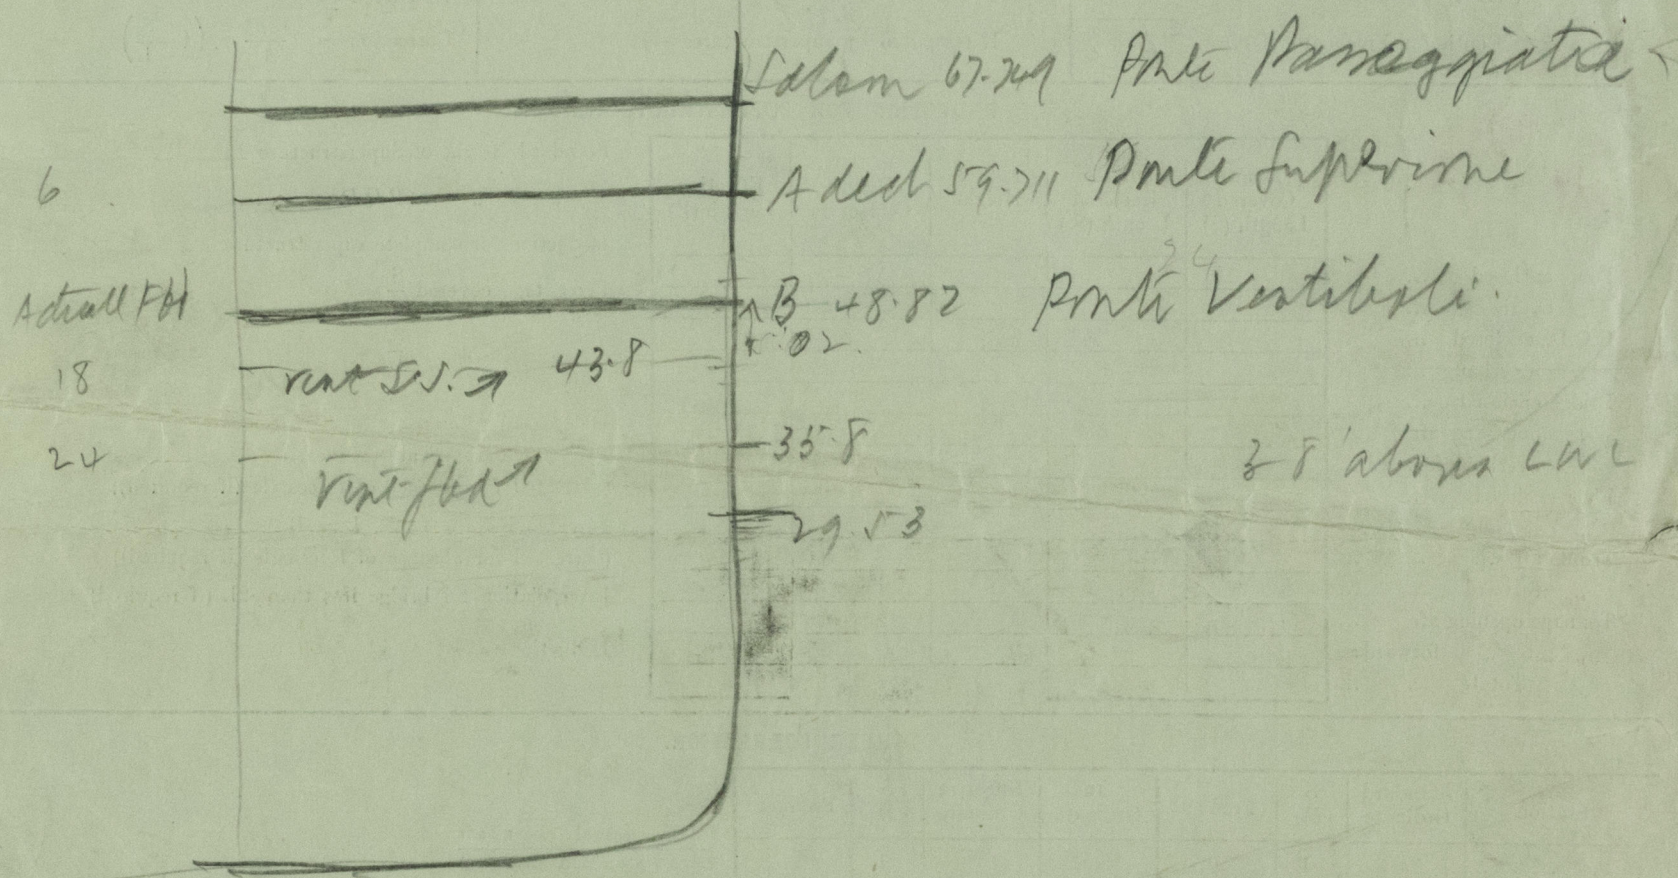 Saloon 67.749 Ponte Passeggiata
6
A deck 59.711 Ponte Superiore
24
Actuall Fbd B 48.82 Ponte Vestiboli.
5.02.
18 vent S.S. 43.8
24 vent fbd 35.8
38' above LWL
29.53